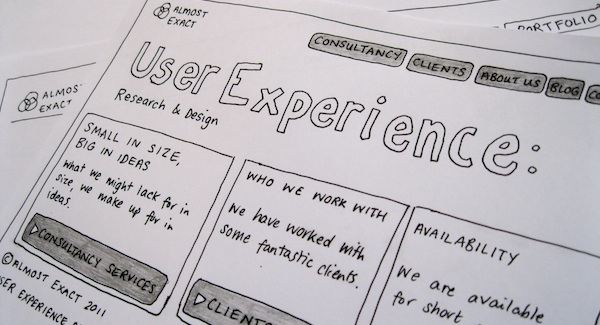 ALMOST
EXACT
CONSULTANCY
CLIENTS
ABOUT US
BLOG
User Experience:
Research & Design
SMALL IN SIZE,
BIG IN IDEAS
What we might lack for in
size, we make up for in
ideas.
▷CONSULTANCY SERVICES
WHO WE WORK WITH
We have worked with
some fantastic clients.
▷CLIENTS
AVAILABILITY
We are available
for short
© ALMOST EXACT 2011
USER EXPERIENCE
ALMOST
EXACT
PORTFOLIO